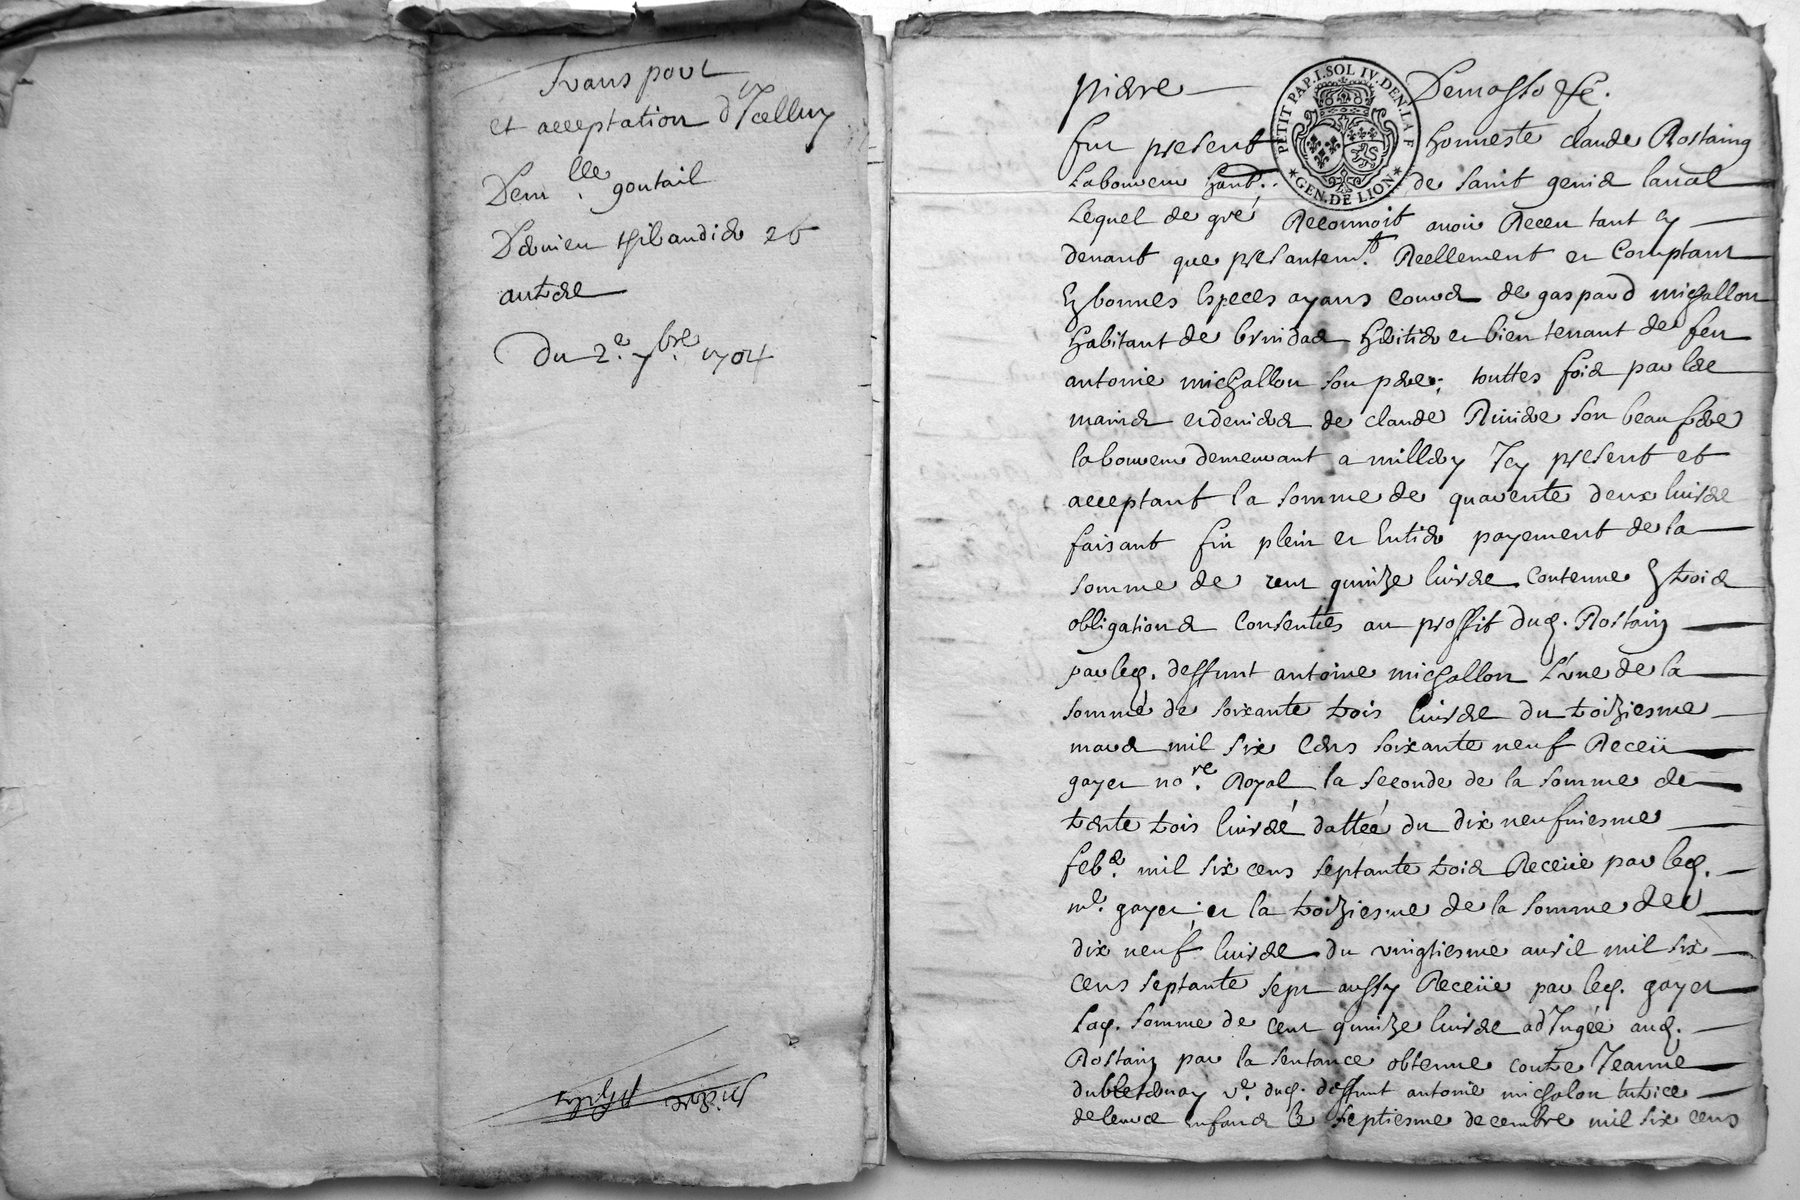 Transport
et acceptation d'Icelluy
Dem lle. goutail
Dernier thibaudier et
autre
Du 2e. 7bre. 1704
pierre
PETIT PAP. 1.SOL IV. DEN. LA F
★ GEN. DE LION ★
fut present honneste claude Rostaing
Laboureur habt. de saint genis laual
Lequel de gré Reconnoit auoir Receu tant cy
deuant que presantemt. Reellement et Comptant
En bonnes especes ayans cours de gaspard michallon
habitant de brindas heritier et bien tenant de feu
antoine michallon son pere, touttes fois par les
mains et deniers de claude Riuiere son beau frere
laboureur demeurant a millery Icy present et
acceptant la somme de quarente deux liures
faisant fin plein et Entier payement de la
somme de cent quinze liures Contenue En trois
obligations Consenties au proffit dud. Rostaing
par led. deffunt antoine michallon L'une de la
somme de soixante trois liures du troiziesme
mars mil six Cens soixante neuf Receü
gayet nore. Royal la seconde de la somme de
trente trois liures dattée du dix neufuiesme
febr. mil six cens septante trois Receüe par led.
me. gayet; et la troiziesme de la somme de
dix neuf liures du vingtiesme auril mil six
cens septante sept aussy Receüe par led. gayet
Lad. somme de cent quinze liures adIugée aud.
Rostaing par la sentance obtenue contre Jeanne
ve. dud. deffunt antoine michalon tutrice
de leurs enfans le septiesme decembre mil six cens